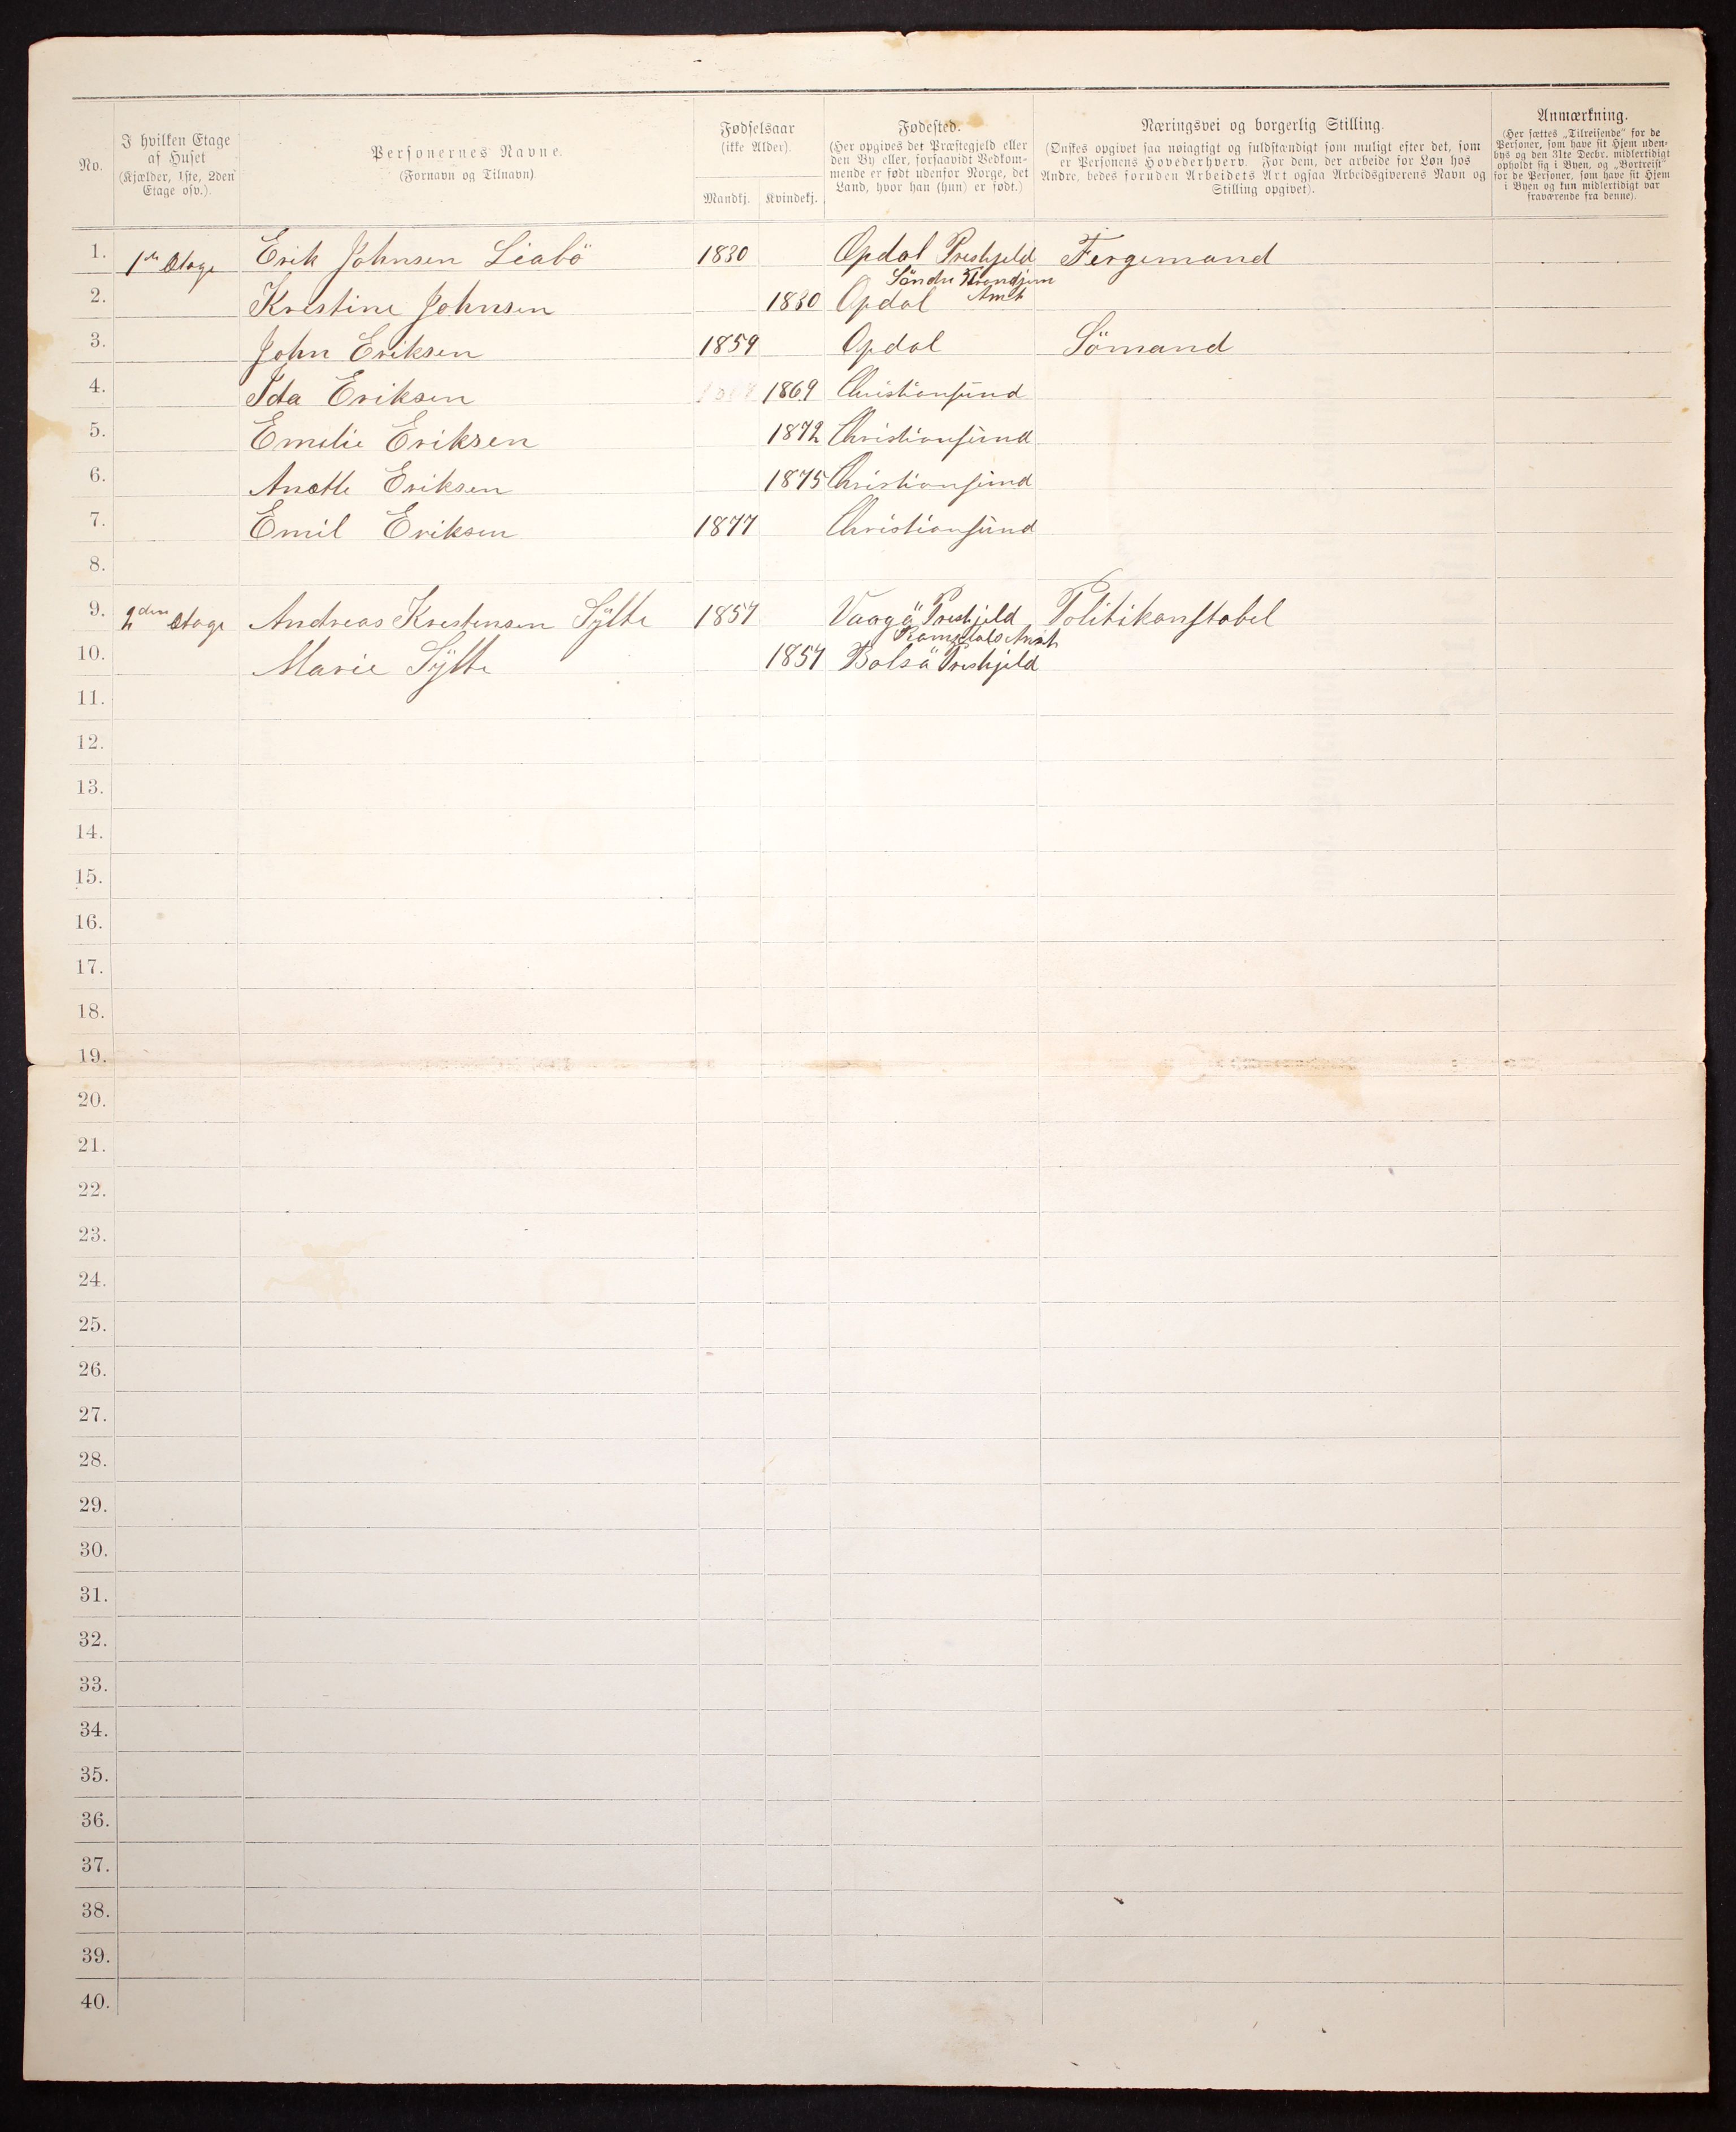 No.
I hvilken Etage
af Huset
(Kjælder, 1ste, 2den
Etage osv.).
Personernes Navne.
(Fornavn og Tilnavn)
Fødselsaar
(ikke Alder).
Mandkj. Kvindekj.
Fødested.
(Her opgives det Præstegjeld eller
den By eller, forsaavidt Vedkom-
mende er født udenfor Norge, det
Land, hvor han (hun) er født.)
Næringsvei og borgerlig Stilling.
(Ønskes opgivet saa nøiagtigt og fuldstændigt som muligt efter det, som
er Personens Hovederhverv. For dem, der arbeide for Løn hos
Andre, bedes foruden Arbeidets Art ogsaa Arbeidsgiverens Navn og
Stilling opgivet).
Anmærkning.
(Her sættes „Tilreisende" for de
Personer, som have sit Hjem uden-
bys og den 31te Decbr. midlertidigt
opholdt sig i Byen, og „Bortreist"
for de Personer, som have sit Hjem
i Byen og kun midlertidigt var
fraværende fra denne).
1. 1ste Etage Erik Johnsen Liabö 1830 Opdal Prestgjeld Fergemand
Söndre Trondjem
2. Kristine Johnsen 1830 Opdal Amt
3. John Eriksen 1859 Opdal Sömand
4. Ida Eriksen 1869 Christiansund
5. Emelie Eriksen 1872 Christiansund
6. Anette Eriksen 1875 Christiansund
7. Emil Eriksen 1877 Christiansund
8.
9. 2den Etage Andreas Kristensen Sylte 1857 Vaagö Prestjeld Politikonstabel
Romsdals Amt
10. Marie Sylte 1857 Bolsö Prestjeld
11.
12.
13.
14.
15.
16.
17.
18.
19.
20.
21.
22.
23.
24.
25.
26.
27.
28.
29.
30.
31.
32.
33.
34.
35.
36.
37.
38.
39.
40.